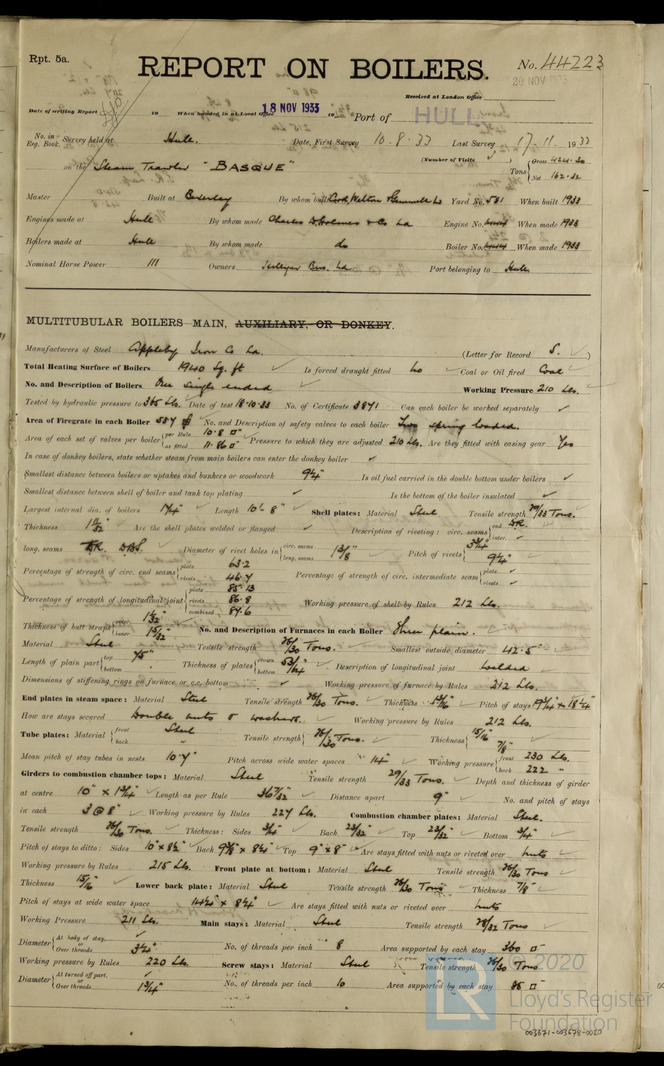 Rpt. 5a.
REPORT ON BOILERS.
No. 44223
20 NOV 1933
Received at London Office
Date of writing Report 19 When handed in at Local Office 18 NOV 1933 19 Port of HULL
No. in Reg. Book. Survey held at Hull. Date, First Survey 10-8-33 Last Survey 17-11-1933
(Number of Visits )
on the Steam Trawler "BASQUE" Tons { Gross Net 162.32
Master Built at Beverley By whom built Cook, Welton & Gemmell Ld Yard No. 581 When built 1933
Engines made at Hull By whom made Charles D. Holmes & Co Ld Engine No. When made 1933
Boilers made at Hull By whom made do Boiler No. When made 1933
Nominal Horse Power 111 Owners Hellyer Bros. Ld Port belonging to Hull
MULTITUBULAR BOILERS MAIN, AUXILIARY, OR DONKEY.
Manufacturers of Steel Appleby Iron Co Ld. (Letter for Record S. )
Total Heating Surface of Boilers 1940 Sq. ft Is forced draught fitted No Coal or Oil fired Coal
No. and Description of Boilers One single ended Working Pressure 210 Lbs.
Tested by hydraulic pressure to 365 Lbs. Date of test 18-10-33 No. of Certificate 3871 Can each boiler be worked separately
Area of Firegrate in each Boiler No. and Description of safety valves to each boiler Two spring loaded.
Area of each set of valves per boiler { per Rule 10.8 □" as fitted 11.86 □" Pressure to which they are adjusted 210 Lbs. Are they fitted with easing gear Yes
In case of donkey boilers, state whether steam from main boilers can enter the donkey boiler
Smallest distance between boilers or uptakes and bunkers or woodwork Is oil fuel carried in the double bottom under boilers
Smallest distance between shell of boiler and tank top plating Is the bottom of the boiler insulated
Largest internal dia. of boilers Length 10'-8" Shell plates: Material Steel Tensile strength 29/33 Tons.
Thickness Are the shell plates welded or flanged Description of riveting: circ. seams { end DR. inter.
long. seams DBS. Diameter of rivet holes in { circ. seams long. seams 1 3/8" Pitch of rivets { 3 3/4" 9 1/4"
Percentage of strength of circ. end seams { plate 63.2 rivets 46.7 Percentage of strength of circ. intermediate seam { plate rivets
Percentage of strength of longitudinal joint { plate 85.13 rivets 86.8 combined 87.6 Working pressure of shell by Rules 212 Lbs.
Thickness of butt straps { outer 1 1/32" inner 15/32" No. and Description of Furnaces in each Boiler Three plain.
Material Steel Tensile strength 26/30 Tons. Smallest outside diameter 42.5"
Length of plain part { top 75" bottom Thickness of plates { crown bottom 53/64" Description of longitudinal joint welded
Dimensions of stiffening rings on furnace or c.c. bottom Working pressure of furnace by Rules 212 Lbs.
End plates in steam space: Material Steel Tensile strength 26/30 Tons Thickness Pitch of stays
How are stays secured Double nuts & washers. Working pressure by Rules 212 Lbs.
Tube plates: Material { front Steel back Tensile strength { 26/30 Tons. Thickness { 15/16" 7/8"
Mean pitch of stay tubes in nests 10.7" Pitch across wide water spaces 14" Working pressure { front 230 Lbs. back 222 "
Girders to combustion chamber tops: Material Steel Tensile strength 29/33 Tons. Depth and thickness of girder
at centre 10" × 1 3/4" Length as per Rule 36 7/32" Distance apart 9" No. and pitch of stays
in each 3 @ 8" Working pressure by Rules 227 Lbs. Combustion chamber plates: Material Steel.
Tensile strength 26/30 Tons. Thickness: Sides 3/4" Back 23/32" Top 23/32" Bottom 3/4"
Pitch of stays to ditto: Sides 10" × 8 1/2" Back 9 3/8" × 8 3/4" Top 9" × 8" Are stays fitted with nuts or riveted over nuts
Working pressure by Rules 215 Lbs. Front plate at bottom: Material Steel Tensile strength 26/30 Tons
Thickness 15/16" Lower back plate: Material Steel Tensile strength 26/30 Tons Thickness 7/8"
Pitch of stays at wide water space 14 1/4" × 8 3/4" Are stays fitted with nuts or riveted over nuts
Working Pressure 211 Lbs. Main stays: Material Steel Tensile strength 28/32 Tons
Diameter { At body of stay, or Over threads 3 1/4" No. of threads per inch 8 Area supported by each stay 360 □"
Working pressure by Rules 220 Lbs. Screw stays: Material Steel Tensile strength 26/30 Tons
Diameter { At turned off part, or Over threads 1 3/4" No. of threads per inch 10 Area supported by each stay 85 □"
© 2020
Lloyd's Register
Foundation
003671-003679-0020